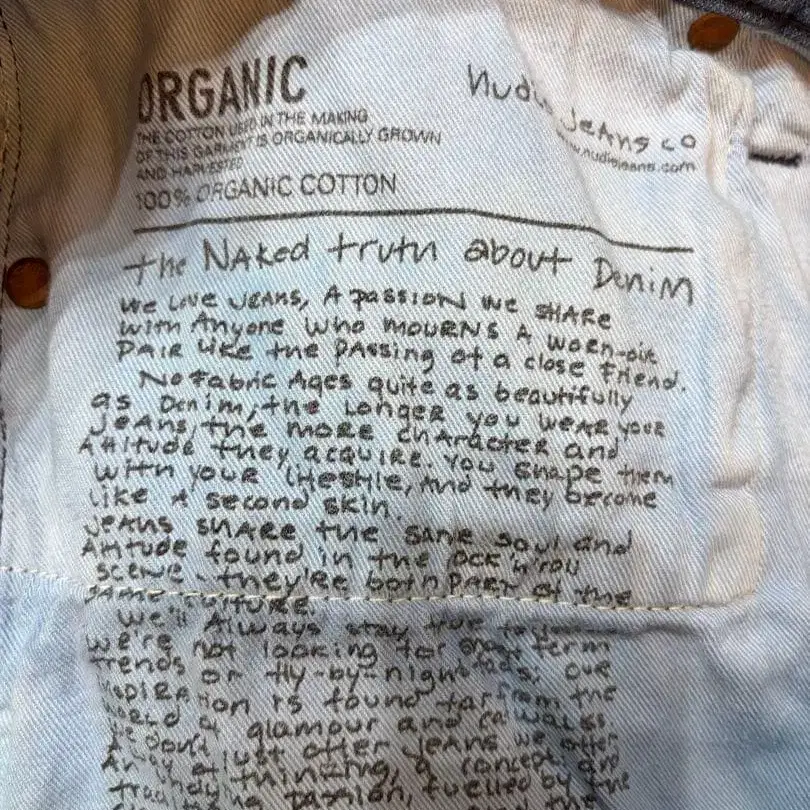 ORGANIC
THE COTTON USED IN THE MAKING
OF THIS GARMENT IS ORGANICALLY GROWN
AND HARVESTED
100% ORGANIC COTTON
Nudie Jeans co
www.nudiejeans.com
the Naked truth about Denim
We Love Jeans, A passion we share
with Anyone who mourns a worn-out
pair like the passing of a close friend.
No fabric Ages quite as beautifully
as Denim, the Longer you wear your
Jeans, the more character and
Attitude they acquire. You shape them
with your lifestyle, and they become
like a second skin.
Jeans share the same soul and
Attitude found in the rock'n'roll
scene - they're both part of the
same culture.
We'll Always stay true to
we're not looking for short term
trends or fly-by-night fads; our
inspiration is found far from the
world of glamour and catwalks
just offer jeans we offer
A way of thinking, a concept and
An undying passion, fuelled by the